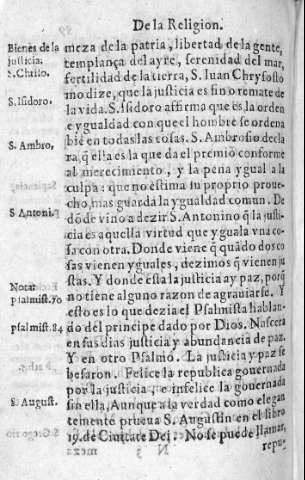 De la Religion.
Bienes de la
justicia.
S. Chriso.
S. Isidoro.
S. Ambro,
S Antoni.
Notar
psalmist. 70
psalmist. 84
S. August.
meza de la patria, libertad de la gente,
templança del ayre, serenidad del mar,
fertilidad de la tierra, S. Iuan Chrysosto
mo dize, que la justicia es fin o remate de
la vida. S. Isidoro affirma que es la orden
e ygualdad con quel hombre se ordena
biẽ en todas las cosas. S. Ambrosio decla
ra, q̃ ella es la que da el premio conforme
al merecimiento, y la pena ygual a la
culpa: que no estima su proprio proue-
cho, mas guarda la ygualdad comun. De
dõde vino a dezir S. Antonino q̃ la justi-
cia es aquella virtud que yguala vna co-
sa con otra. Donde viene q̃ quãdo dos co
sas vienen yguales, dezimos q̃ vienen ju
stas. Y donde esta la justicia ay paz, porq̃
no tiene alguno razon de agrauiarse. Y
esto es lo que dezia el Psalmista hablan-
do del principe dado por Dios. Nascera
en sus dias justicia y abundancia de paz.
Y en otro Psalmo. La justicia y paz se
besaron. Felice la republica gouernada
por la justicia, e infelice la gouernada
sin ella, Aunque a la verdad como elegan
temente prueua S. Augustin en el libro
19. de Ciuitate Dei: No se puede llamar,
N 3 repu-